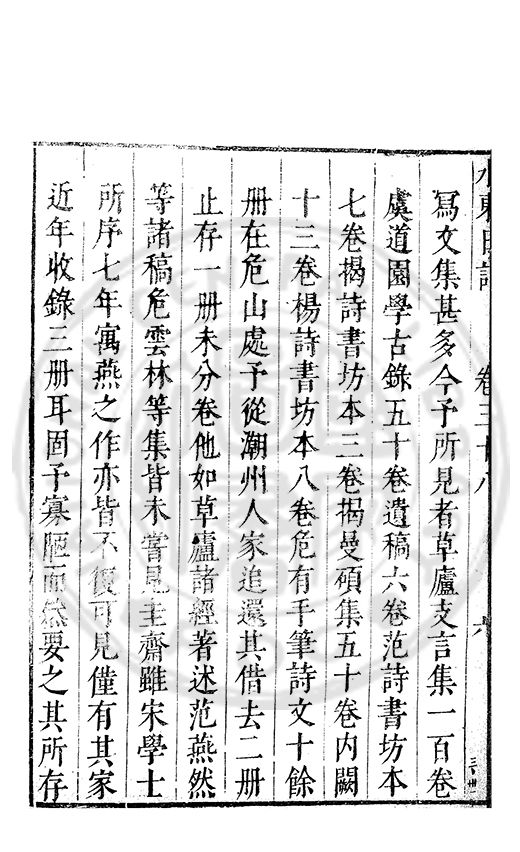 水東日記 卷三十八 六
寫文集甚多今予所見者草廬支言集一百卷
虞道園學古錄五十卷遺稿六卷范詩書坊本
七卷揭詩書坊本三卷揭曼碩集五十卷內闕
十三卷楊詩書坊本八卷危有手筆詩文十餘
册在危山處予從潮州人家追還其借去二册
止存一册未分卷他如草廬諸經著述范燕然
等諸稿危雲林等集皆未嘗見圭齋雖宋學士
所序七年寓燕之作亦皆不復可見僅有其家
近年收錄三册耳固予寡陋而然要之其所存